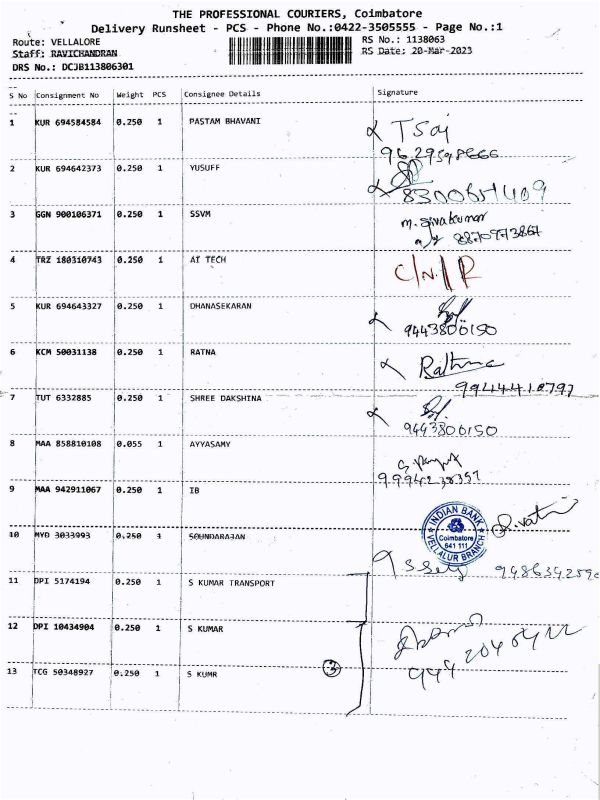 THE PROFESSIONAL COURIERS, Coimbatore
Delivery Runsheet - PCS - Phone No.:0422-3505555 - Page No.:1
Route: VELLALORE RS No.: 1138063
Staff: RAVICHANDRAN RS Date: 20-Mar-2023
DRS No.: DCJB113806301
S No Consignment No Weight PCS Consignee Details Signature
1 KUR 694584584 0.250 1 PASTAM BHAVANI T Sai
2 KUR 694642373 0.250 1 YUSUFF
3 GGN 900106371 0.250 1 SSVM m. Sivakumar
4 TRZ 180310743 0.250 1 AI TECH C/N/R
5 KUR 694643327 0.250 1 DHANASEKARAN
9443806150
6 KCM 50031138 0.250 1 RATNA Rathna
7 TUT 6332885 0.250 1 SHREE DAKSHINA
9443806150
8 MAA 858810108 0.055 1 AYYASAMY
9 MAA 942911067 0.250 1 IB
INDIAN BANK
Coimbatore
641 111
VELLALUR BRANCH
10 MYD 3033993 0.250 1 SOUNDARAJAN
11 DPI 5174194 0.250 1 S KUMAR TRANSPORT
12 DPI 10434904 0.250 1 S KUMAR
13 TCG 50348927 0.250 1 S KUMR 3